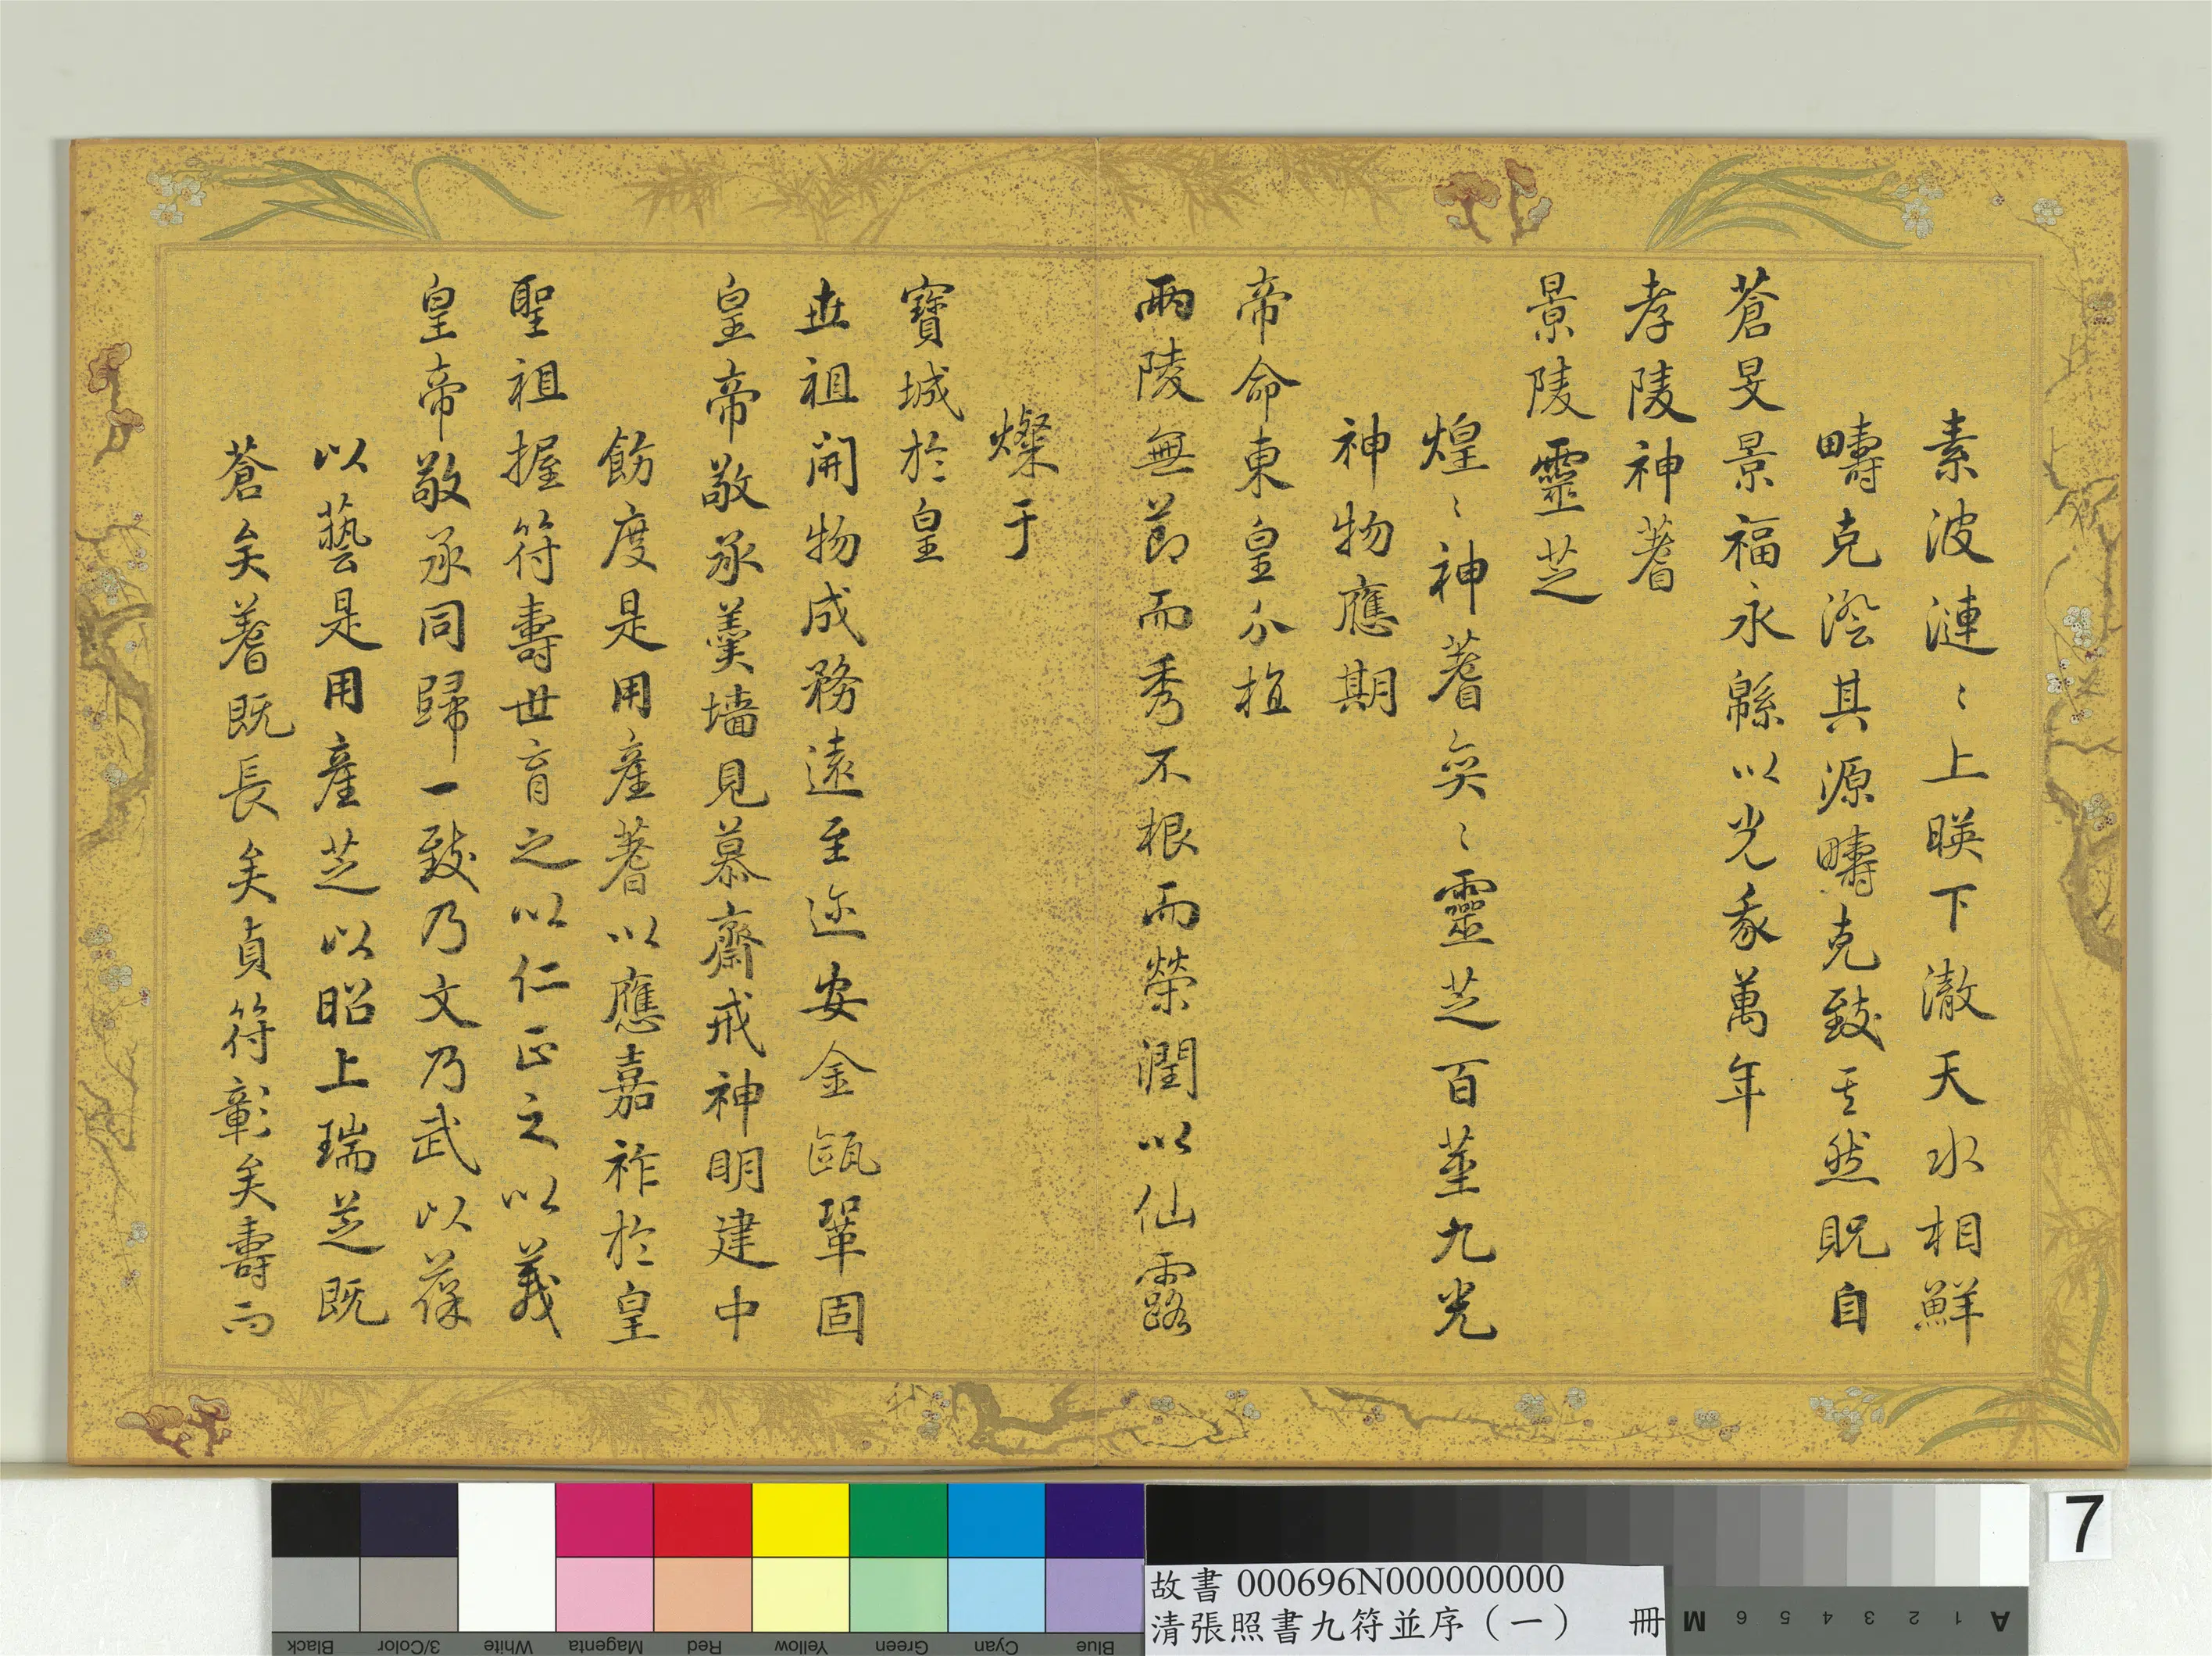 素波漣〻上暎下澈天水相鮮
疇克澄其源疇克致其然貺自
蒼旻景福永緜以光我萬年
孝陵神蓍
景陵靈芝
煌〻神蓍奕〻靈芝百莖九光
神物應期
帝命東皇分植
兩陵無節而秀不根而榮潤以仙露
燦于
寶城於皇
世祖開物成務遠至迩安金甌鞏固
皇帝敬承羹墻見慕齋戒神明建中
飭度是用産蓍以應嘉祚於皇
聖祖握符壽世育之以仁正之以義
皇帝敬承同歸一致乃文乃武以葆
以藝是用産芝以昭上瑞芝既
蒼矣蓍既長矣貞符彰矣壽而
7
故書 000696N000000000
清張照書九符並序（一） 冊
Black 3/Color White Magenta Red Yellow Green Cyan Blue
A 1 2 3 4 5 6 M